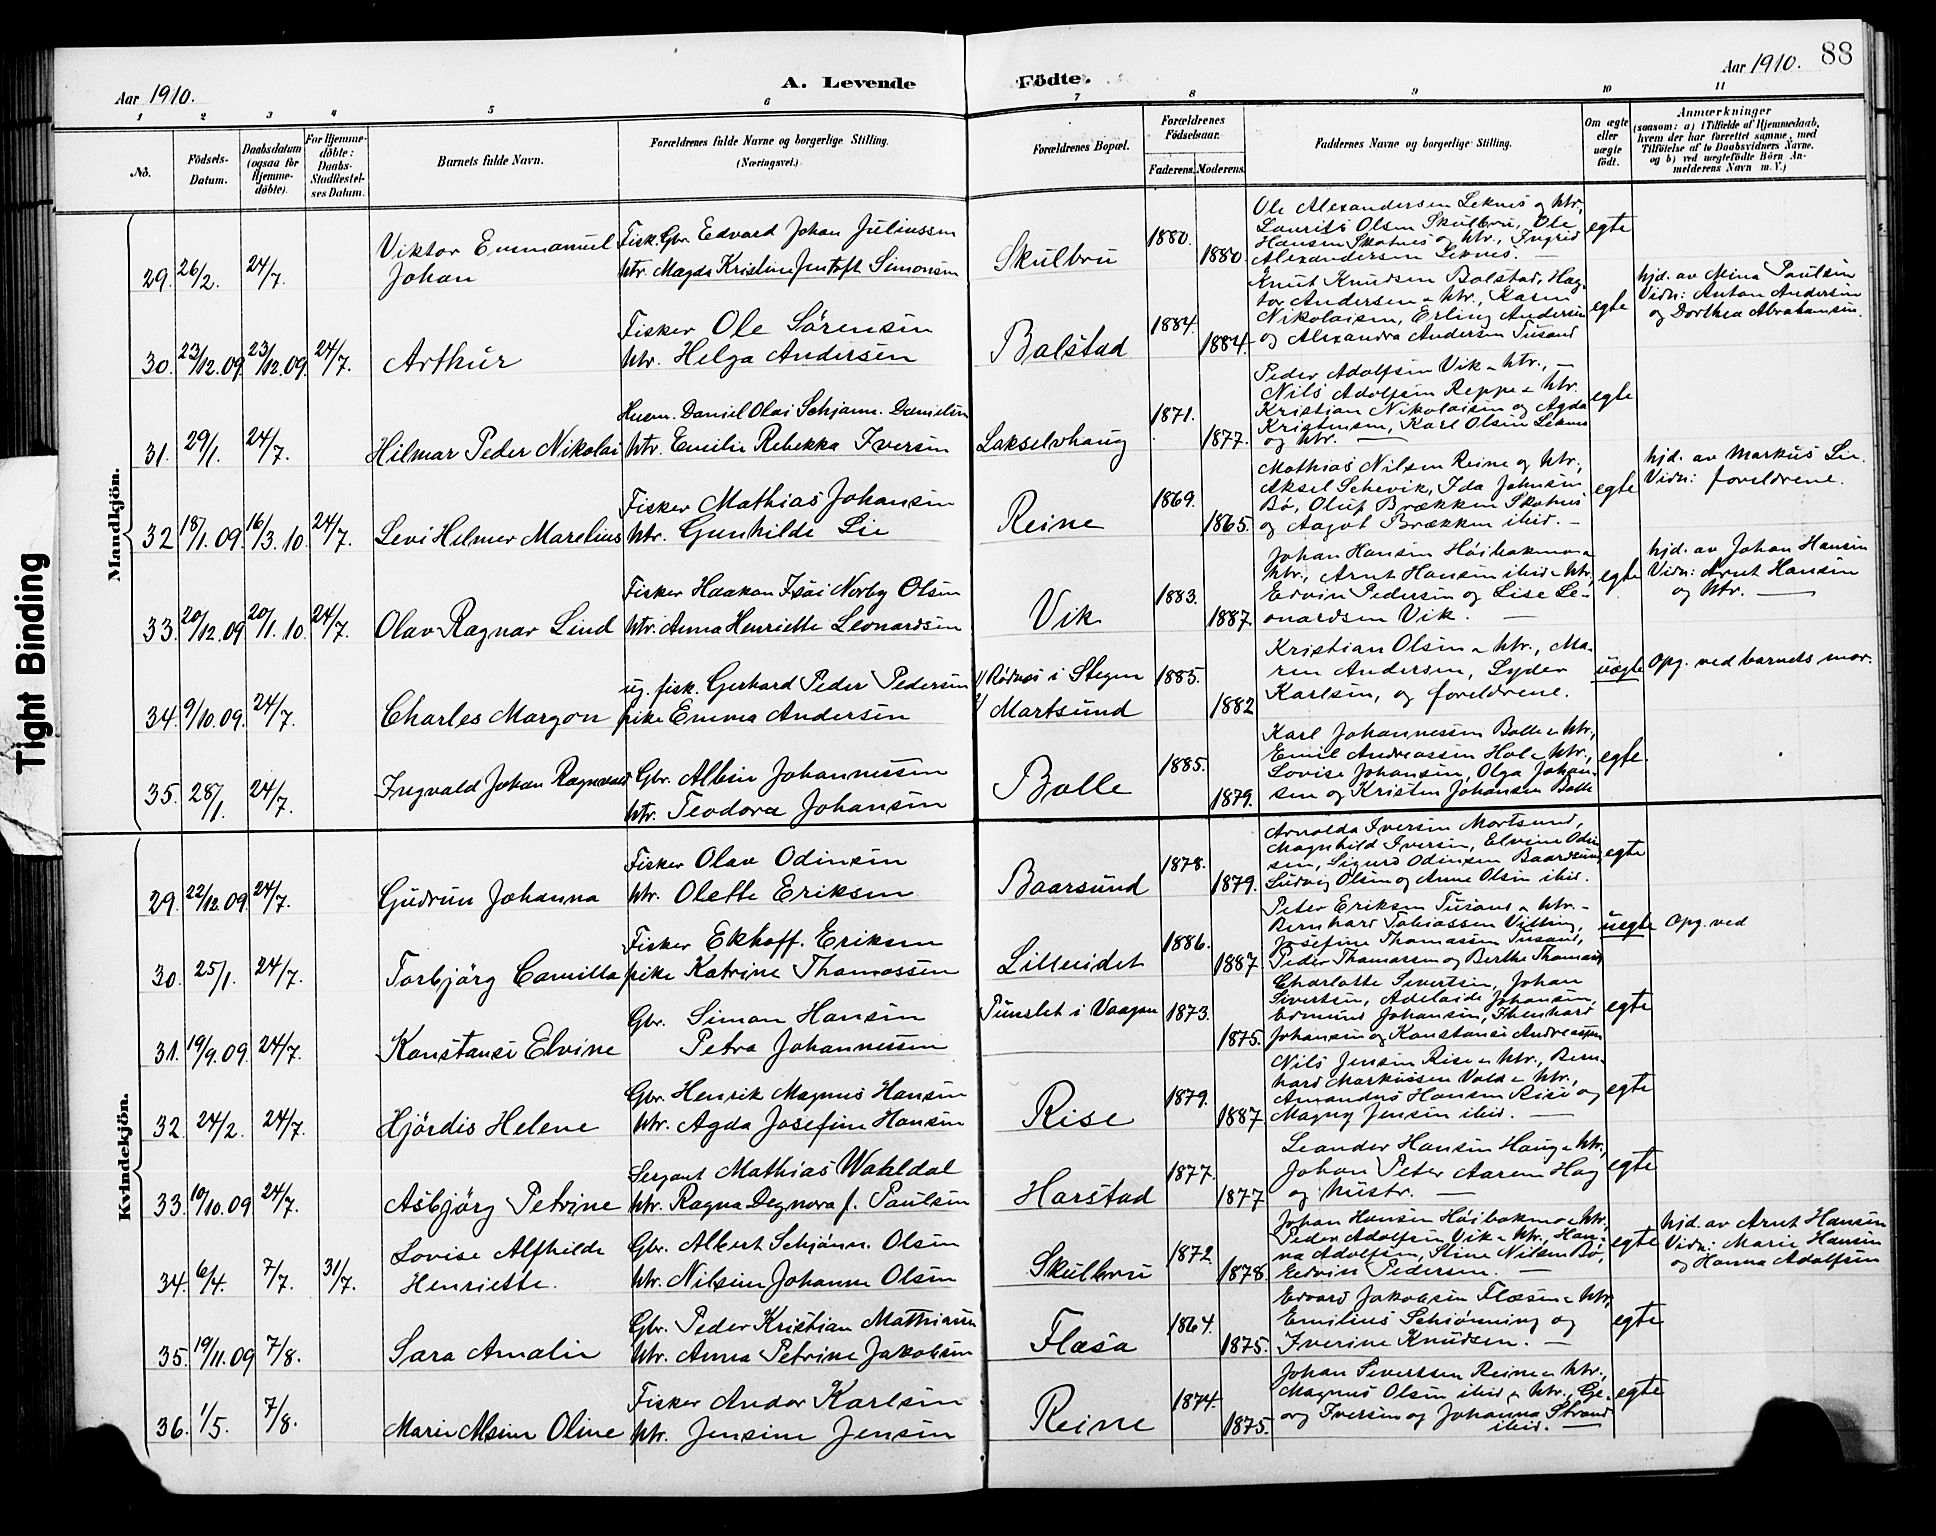 Aar 1910.
A. Levende Födte.
Aar 1910. 88
1 2 3 4 5 6 7 8 9 10 11
No.
Födsels-Datum.
Daabsdatum (ogsaa for Hjemme-döbte).
For Hjemme-döbte: Daabs-Stadfæstel-ses Datum.
Barnets fulde Navn.
Forældrenes fulde Navne og borgerlige Stilling.
(Næringsvei.)
Forældrenes Bopæl.
Forældrenes Födselsaar.
Faderens. Moderens.
Faddernes Navne og borgerlige Stilling.
Om ægte eller uægte födt.
Anmærkninger
(saasom: a) i Tilfælde af Hjemmedaab,
hvem der har forrettet samme, med
Tilföielse af to Daabsvidners Navne,
og b) ved uægtefödte Börn An-
melderens Navn m. V.)
Mandkjön.
29. 26/2. 24/7. Viktor Emmanuel Johan
Fisk. Gbr. Edvard Johan Juliussen
htr. Magda Kristine Jentoft Simonsen
Skulbru 1880. 1880
Ole Alexandersen Leknes og htr,
Laurits Olsen Skulbru, Ole
Hansen Skotnes og htr., Ingrid
Alexandersen Leknes. —
egte
30. 23/12.09. 23/12.09. 24/7. Arthur
Fisker Ole Sörensen
htr. Helga Andersen
Balstad 1884. 1884.
Knut Knudsen Balstad, Hag-
bor Andersen & htr., Karen
Nikolaisen, Erling Andersen
og Alexandra Andersen Tusand
egte
hjd. av Mina Paulsen
Vidn: Anton Andersen
og Dorthea Abrahamsen.
31. 29/1. 24/7. Hilmar Peder Nikolai
Husm. Daniel Olai Schjann. Danielsen
htr. Emilie Rebekka Iversen
Lakselvhaug 1871. 1877.
Peder Adolfsen Vik & htr., —
Nils Adolfsen Reppe & htr.
Kristian Nikolaisen og Agda
Kristensen, Karl Olsen Leknes
og htr. —
egte
32. 18/1.09. 16/3.10. 24/7. Levi Helmer Marelius
Fisker Mathias Johansen
htr. Gunhilde Lie
Reine 1869. 1865.
Mathias Nilsen Reine og htr,
Aksel Schevik, Ida Johnsen
Bø, Oluf Brækken Skotnes
og Aagot Brækken ibid. —
egte
hjd. av Markus Lie.
Vidn: foreldrene.
33. 20/12.09. 20/1.10. 24/7. Olav Ragnar Lind
Fisker Haakon Isai Norby Olsen
htr. Anna Henriette Leonardsen
Vik 1883. 1887.
Johan Hansen Höibakmo &
htr., Arnt Hansen ibid & htr,
Edvin Pedersen og Lise Le-
onardsen Vik. —
egte
hjd. av Johan Hansen
Vidn: Arnt Hansen
og htr. —
34. 9/10.09. 24/7. Charles Margon
ug. fisk. Gerhard Peder Pedersen
pike Emma Andersen
1/ Rödnes i Stegen
2/ Martsund
1885. 1882
Kristian Olsen & htr., Ma-
ren Andersen, Lyder
Karlsen, og foreldrene.
uægte
Opg. ved barnets mor.
35. 28/1. 24/7. Ingvald Johan Ragnvald
Gbr. Albin Johannessen
htr. Teodora Johansen
Bolle 1885. 1879.
Karl Johannessen Bolle & htr,
Emil Andreassen Hol & htr,
Lovise Johansen, Olga Johan-
sen og Kristen Johansen Bolle
egte
Kvindekjön.
29. 22/12.09. 24/7. Gudrun Johanna
Fisker Olav Odinsen
htr. Olette Eriksen
Baarsund 1878. 1879.
Arnolda Iversen Mortsund,
Magnhild Iversen, Elvine Odin-
sen, Sigurd Odinsen Baardsund
Ludvig Olsen og Anne Olsen ibid.
egte
30. 25/1. 24/7. Torbjörg Camilla
Fisker Ekhoff. Eriksen
pike Katrine Thomassen
Lilleeidet 1886. 1887
Peter Eriksen Tusand & htr. -
Bernhard Tobiassen Vitting,
Josefine Thomassen Tusand,
Peder Thomassen og Berthe Thomass
uegte
Opg. ved
31. 19/9.09. 24/7. Konstanse Elvine
Gbr. Simon Hansen
Petra Johannessen
Pundslet i Vaagan 1873. 1875.
Charlotte Sivertsen, Johan
Sivertsen, Adelaide Johansen,
Edmund Johansen, Ehenhard
Johansen og Konstanse Andreassen
egte
32. 24/2. 24/7. Hjördis Helene
Gbr. Henrik Magnus Hansen
htr. Agda Josefine Hansen
Rise 1879. 1887
Nils Jensen Rise & htr., Bern-
hard Markussen Vold & htr.,
Amandus Hansen Rise og
Magny Jensen ibid. —
egte
33. 10/10.09. 24/7. Asbjörg Petrine
Sergant Mathias Wahldal
htr. Ragna Degnora f. Paulsen
Harstad 1877. 1877
Leander Hansen Haug & htr.
Johan Peter Aaren Hag
og hustr. —
egte
34. 6/4. 7/7. 31/7. Lovise Alfhilde Henriette.
Gbr. Albert Schjönn. Olsen
htr. Nilsine Johanne Olsen
Skulbru 1872. 1878.
Johan Hansen Höibakmo & htr,
Peder Adolfsen Vik & htr., Han-
na Adolfsen, Stine Nilsen Bø,
Eedvin Pedersen. —
egte
hjd. av Arnt Hansen
Vidn: Marie Hansen
og Hanna Adolfsen
35. 19/11.09 7/8. Sara Amalie
Gbr. Peder Kristian Mathiassen
htr. Anna Petrine Jakobsen
Flæsa 1864. 1875.
Edvard Jakobsen Flæsen & htr,
Emilius Schiønning og
Iverine Knudsen. —
egte
36. 1/5. 7/8. Marie Alsine Oline
Fisker Andor Karlsen
htr. Jensine Jensen
Reine 1874. 1875.
Johan Sivertsen Reine & htr.,
Magnus Olsen ibid & htr., Ge-
org Iversen og Johanna Strand
ibid. —
egte
Tight Binding